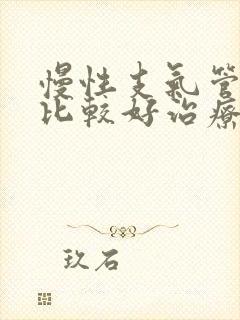 慢性支氣管
比較好治療
玖石